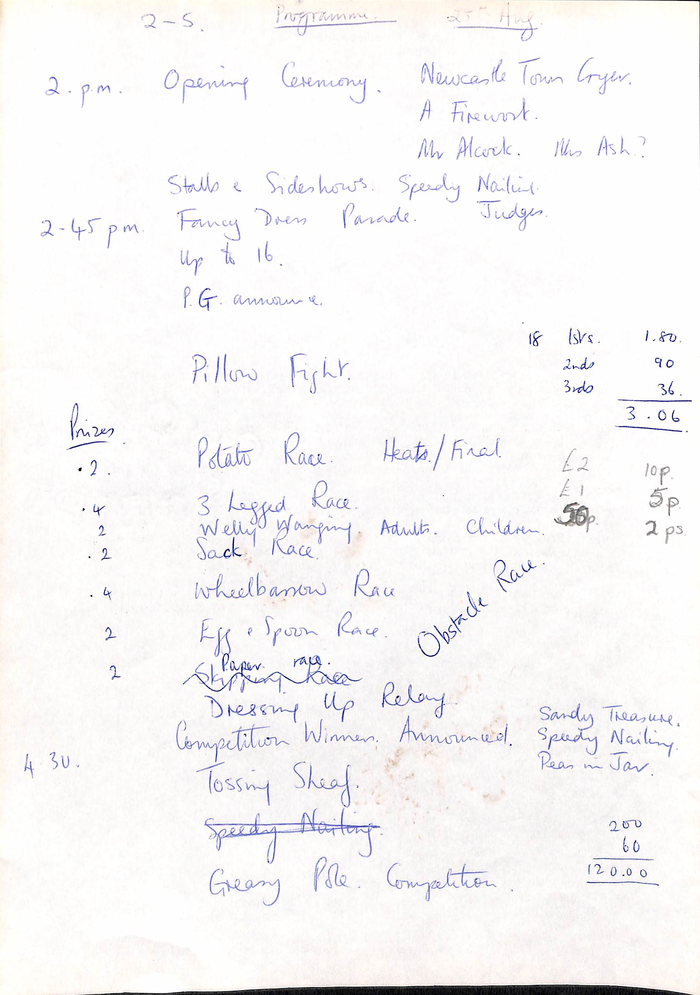 2-5. Programme. 25th Aug.
2.p.m. Opening Ceremony. Newcastle Town Cryer.
A Firework.
Mr Alcock. Mrs Ash?
Stalls & Sideshows. Speedy Nailing.
2-45 pm. Fancy Dress Parade. Judges.
Up to 16.
P.G. announce.
18 1sts. 1.80.
Pillow Fight. 2nds 90
3rds 36.
3.06
Prizes
.2. Potato Race. Heats/Final.
£2 10p.
£1 5p.
.4 3 Legged Race.
50p. 2ps.
2 Welly Wanging. Adults. Children.
.2 Sack Race.
.4 Wheelbarrow Race
Obstacle Race.
2 Egg & Spoon Race.
Paper race.
2 Skipping Race
Dressing Up Relay
Competition Winners. Announced. Sandy Treasure.
Speedy Nailing.
Peas in Jar.
4 30. Tossing Sheaf.
Speedy Nailing.
200
60
120.00
Greasy Pole. Competition.